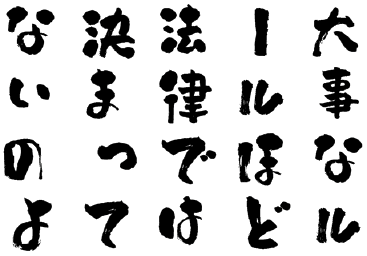 大事なル
ールほど
法律では
決まって
ないのよ